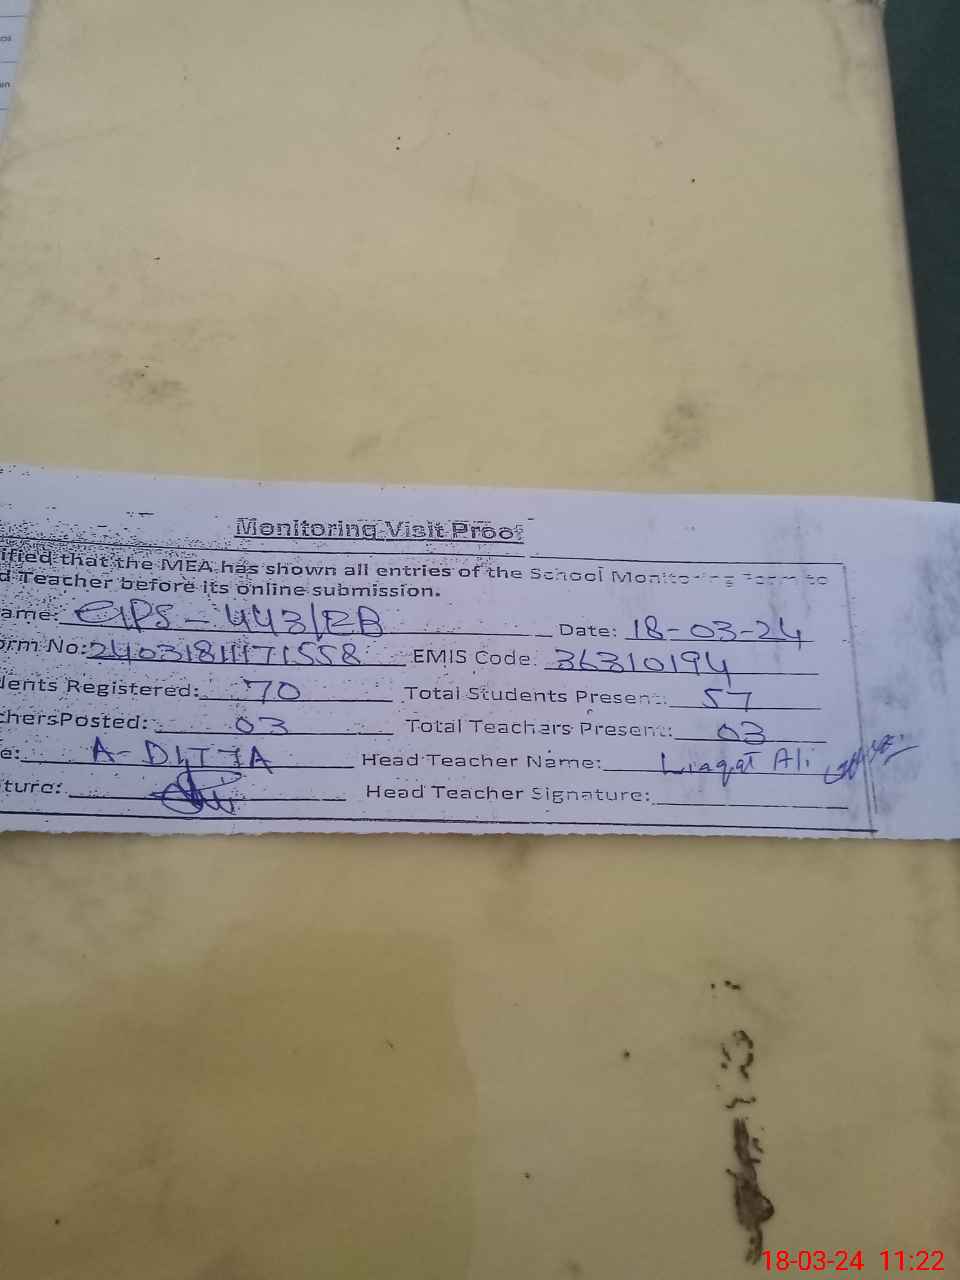 Monitoring Visit Proof
ified that the MEA has shown all entries of the School Monitoring Form to
d Teacher before its online submission.
ame: GPS - 443/EB Date: 18-03-24
orm No: EMIS Code: 36310194
dents Registered: 70 Total Students Present: 57
chersPosted: 03 Total Teachers Present: 03
e: Head Teacher Name: Liaqat Ali
ture: Head Teacher Signature:
18-03-24 11:22